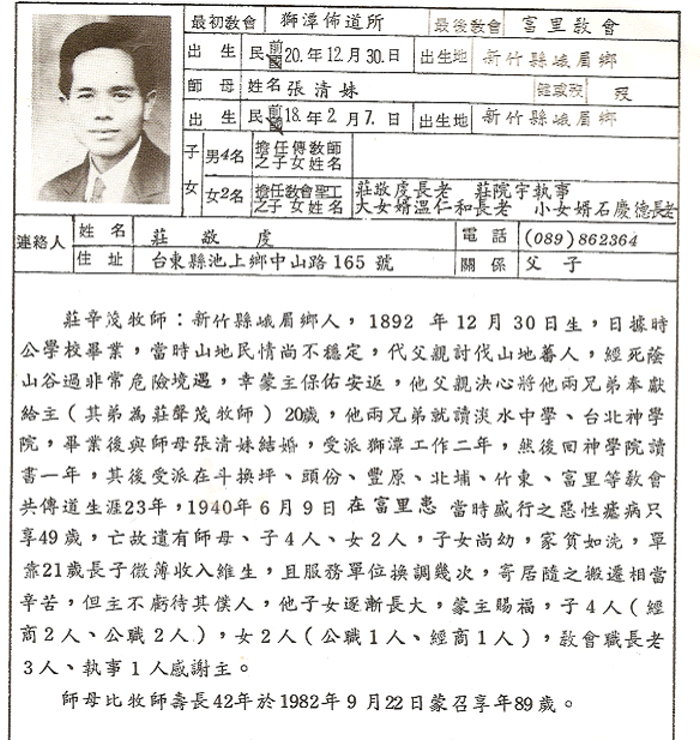 最初教會 獅潭佈道所 最後教會 富里教會
出生 民前國 20.年12月30.日 出生地 新竹縣峨眉鄉
師母 姓名 張清妹 健或歿 歿
出生 民前國 18.年2月7.日 出生地 新竹縣峨眉鄉
子女 男4名 擔任傳教師之子女姓名
女2名 擔任教會聖工之子女姓名 莊敬虔長老 莊院宇執事
大女婿溫仁和長老 小女婿石慶德長老
連絡人 姓名 莊敬虔 電話 (089)862364
住址 台東縣池上鄉中山路165號 關係 父子
莊辛茂牧師：新竹縣峨眉鄉人，1892年12月30日生，日據時
公學校畢業，當時山地民情尚不穩定，代父親討伐山地蕃人，經死蔭
山谷過非常危險境遇，幸蒙主保佑安返，他父親決心將他兩兄弟奉獻
給主（其弟為莊聲茂牧師）20歲，他兩兄弟就讀淡水中學、台北神學
院，畢業後與師母張清妹結婚，受派獅潭工作二年，然後回神學院讀
書一年，其後受派在斗換坪、頭份、豐原、北埔、竹東、富里等教會
共傳道生涯23年，1940年6月9日在富里患當時盛行之惡性瘧病只
享49歲，亡故遺有師母、子4人、女2人，子女尚幼，家貧如洗，單
靠21歲長子微薄收入維生，且服務單位換調幾次，寄居隨之搬遷相當
辛苦，但主不虧待其僕人，他子女逐漸長大，蒙主賜福，子4人（經
商2人、公職2人），女2人（公職1人、經商1人），教會職長老
3人、執事1人感謝主。
師母比牧師壽長42年於1982年9月22日蒙召享年89歲。